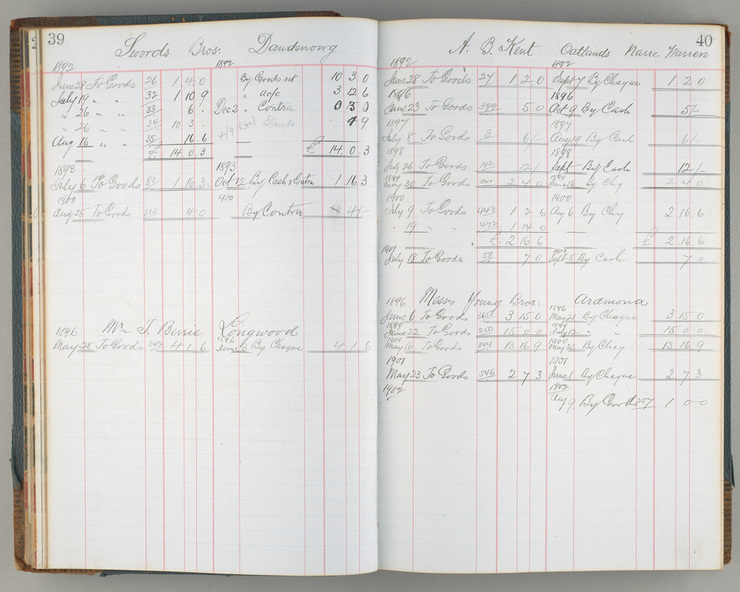 39
Swords Bros. Dandenong
1892 1892
June 28 To Goods 26 1 4 0 By Goods ret 10 3 0
July 19 " " 32 1 10 9 " a/c 3 12 6
" 26 " " 33 6 Dec 2 " Contra 0 3 0
" 26 " " 10 3 4 9
Aug 16 " " 16.6
£ 14 0.3 £ 14.0.3
1893 1893
July 6 To Goods 81 1 16 3 Oct 12 By Cash & Contra 1 16 3
1900 1900
Aug 25 To Goods 4 0 By Contra 4/-
Mr. J. Berrie Longwood
1896 1896
May 28 To Goods 4 1 6 By Cheque 4 1 6
40
A. B. Kent Oatlands Narre Warren
1892 1892
June 28 To Goods 27 1 2 0 Sept 7 By Cheque 1 2 0
1896 1896
June 23 To Goods 392 5 0 Oct 9 By Cash 5/-
1897 1897
July 8 To Goods 6/- Aug 19 By Cash 6/-
1898 1898
July 26 To Goods 12/- Sept By Cash 12/-
1899 1899
May 30 To Goods 2 4 0 June 16 By Chq 2 4 0
1900 1900
July 9 To Goods 443 1 2 6 Aug 6 By Chq 2 16.6
" 19 " " 472 1 14 0
£ 2 16 6 £ 2 16.6
1901 1901
July 18 To Goods 58 7 0 Sept 5 By Cash 7 0
Messrs Young Bros. Ardmona
1896 1896
June 6 To Goods 365 3 15 0 May 21 By Cheque 3 15 0
1899 1899
June 22 To Goods 258 15 0 0 July 12 " " 15 0 0
1900 1900
May 15 To Goods 13 16 9 May 25 By Chq 13 16 9
1901 1901
May 23 To Goods 546 2 7 3 June 1 By Cheque 2 7 3
1902 1902
Aug 9 By Goods 257 1 0 0